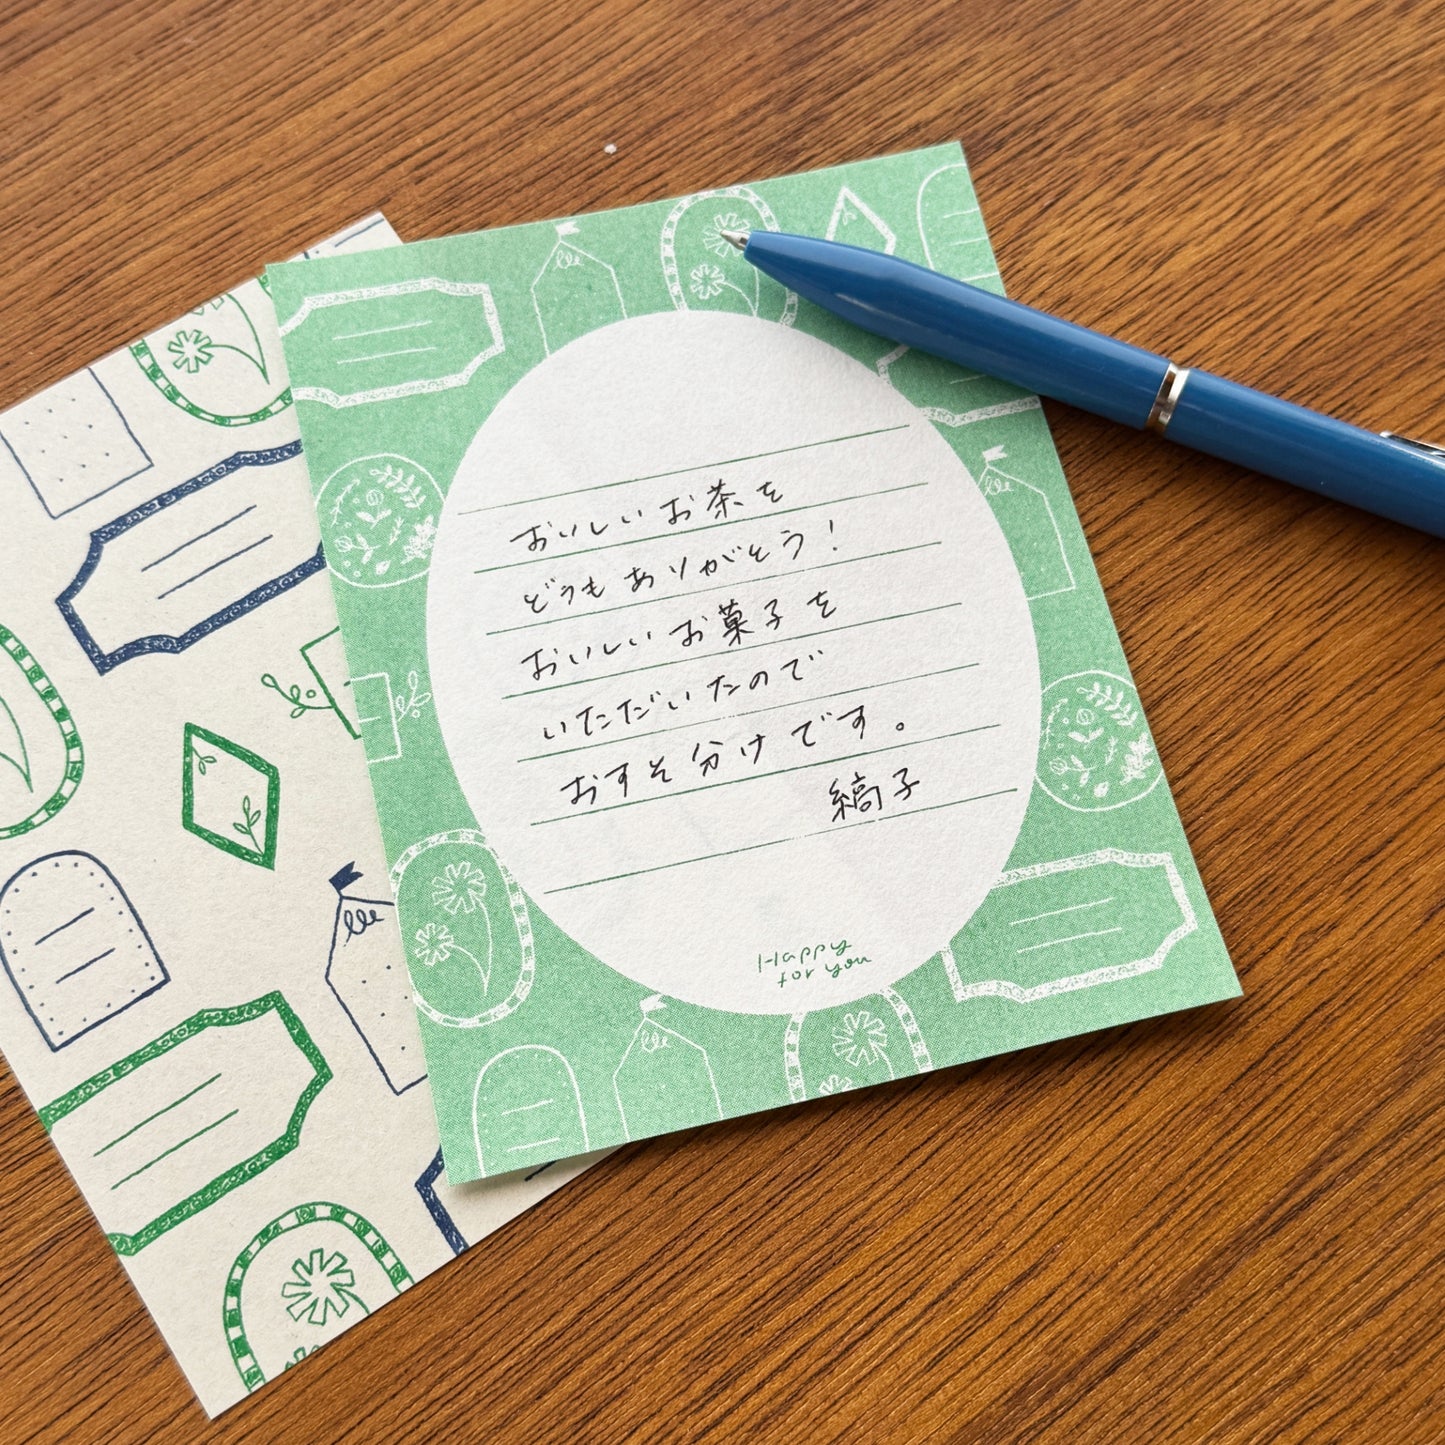 おいしいお茶を
どうもありがとう！
おいしいお菓子を
いただいたので
おすそ分けです。
縞子
Happy
for you